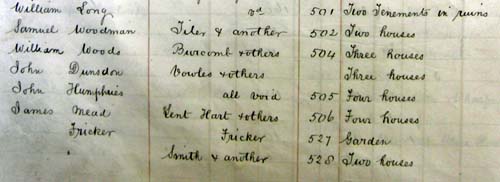 William Long vd 501 Two Tenements in ruins
Samuel Woodman Tiler & another 502 Two houses
William Woods Burcomb & others 504 Three houses
John Dunsdon Vowles & others Three houses
John Humphries all void 505 Four houses
James Mead Lent Hart & others 506 Four houses
Fricker Fricker 527 Garden
Smith & another 528 Two houses